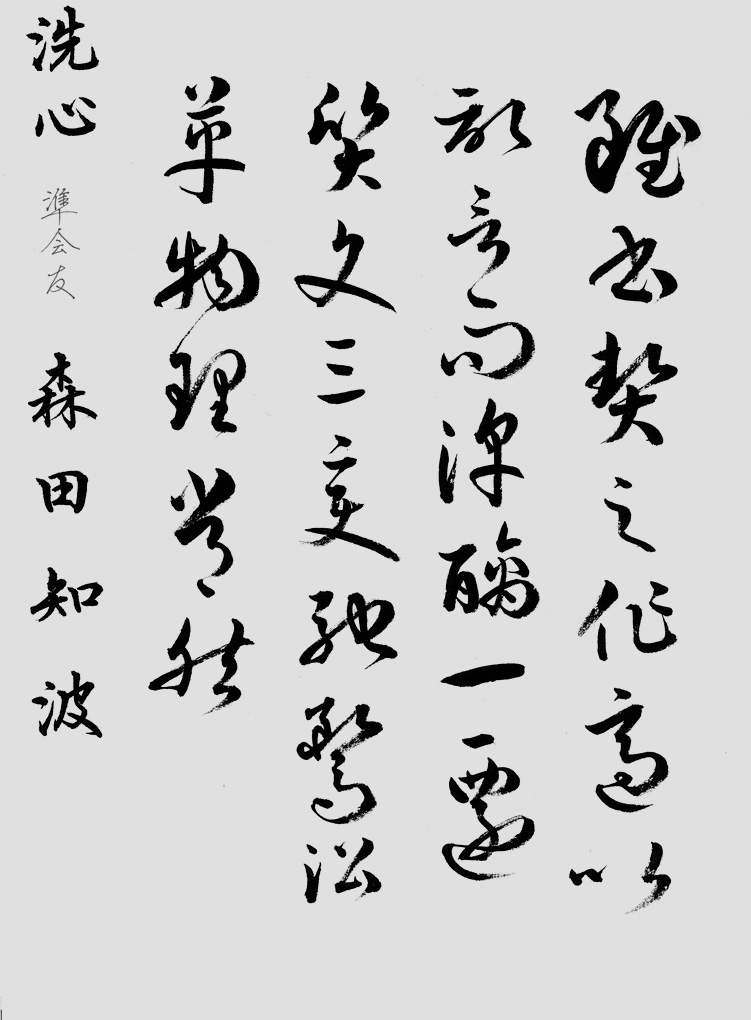 雖書契之作適以
記言而淳醨一遷
質文三變馳騖沿
革物理常然
洗心 準会友 森田知波